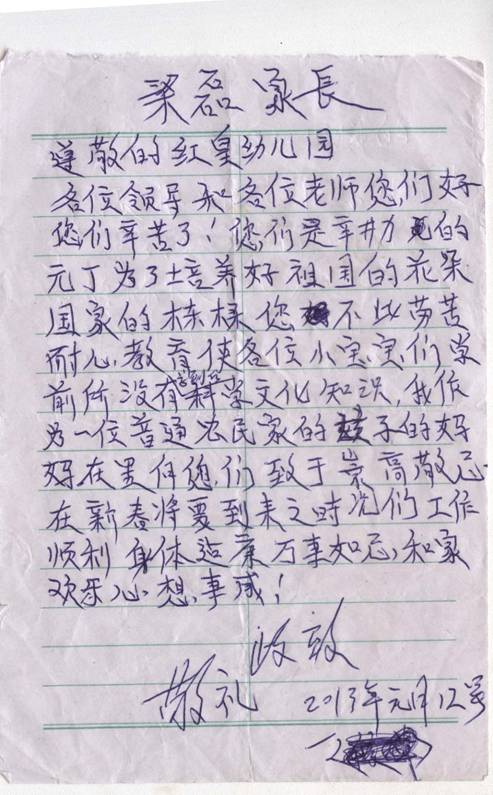 梁磊家長
尊敬的红皇幼儿园
各位领导和各位老师您们好
您们辛苦了！您们是辛勤的
元丁为了培养好祖国的花朵
国家的栋樑您不比劳苦
耐心教育使各位小宝宝们学
前所没有学到的科学文化知识，我作
为一位普通农民家的孩子的好
好在里向您们致于崇高敬意
在新春将要到来之时祝们工作
顺利身体造康万事如意，和家
欢乐心想事成！
此致
敬礼 2013年元月12号